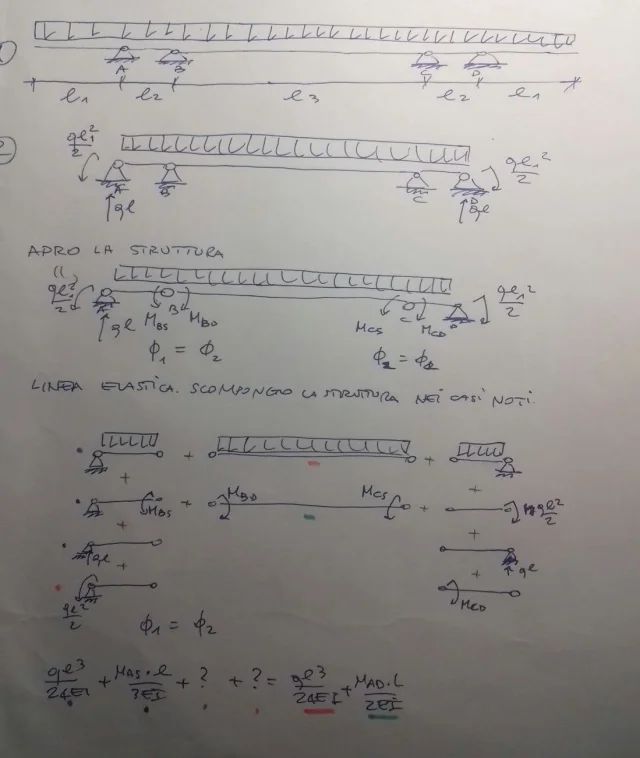 1
A B C D
l₁ l₂ l₃ l₂ l₁
2
ql₁²/2 ql₁²/2
A B C D
ql ql
APRO LA STRUTTURA
ql₁²/2 ql₁²/2
A B C D
ql M_BS M_BD M_CS M_CD
ϕ₁ = ϕ₂ ϕ₂ = ϕ₂
LINEA ELASTICA. SCOMPONGO LA STRUTTURA NEI CASI NOTI.
+ +
+ +
+ M_BS + M_BD M_CS + ql²/2
+ +
ql ql
+ +
ql²/2 M_CD
ϕ₁ = ϕ₂
ql³/24EI + M_AS·l/3EI + ? + ? = ql³/24EI + M_AD·L/2EI